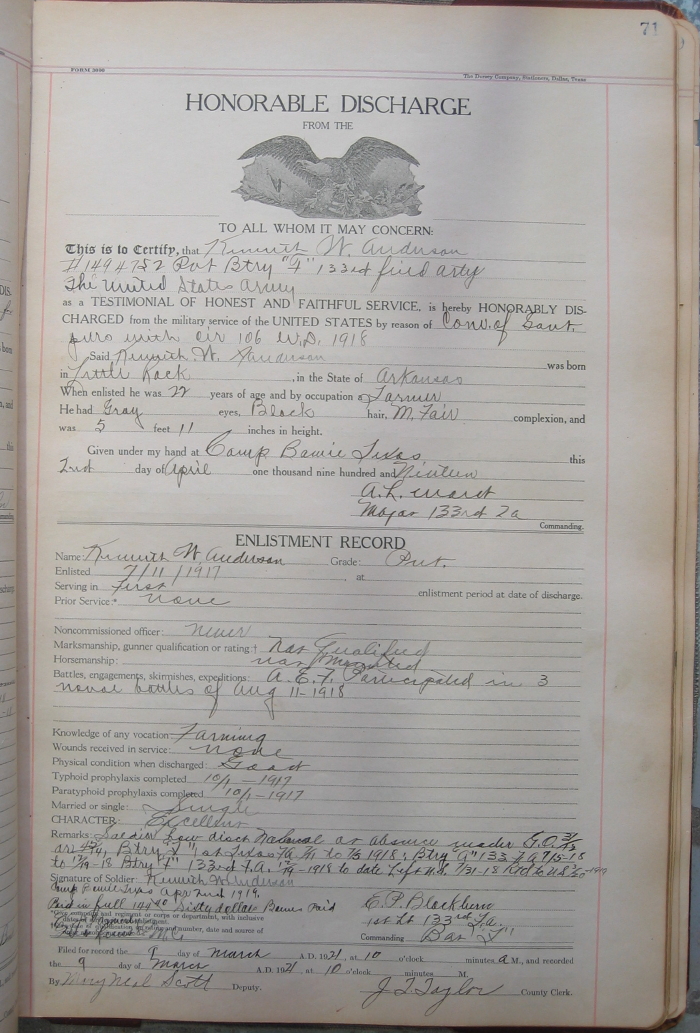 71
FORM 3000
The Dorsey Company, Stationers, Dallas, Texas
HONORABLE DISCHARGE
FROM THE
TO ALL WHOM IT MAY CONCERN:
This is to Certify, that Kenneth W. Anderson
Pvt Btry "F" 133rd field arty
The United States Army
as a TESTIMONIAL OF HONEST AND FAITHFUL SERVICE, is hereby HONORABLY DIS-
CHARGED from the military service of the UNITED STATES by reason of Conv. of Govt
with cir 106 W.D. 1918
Said Kenneth W. Anderson was born
in Little Rock, in the State of Arkansas
When enlisted he was 22 years of age and by occupation a Farmer
He had Gray eyes, Black hair, M. Fair complexion, and
was 5 feet 11 inches in height.
Given under my hand at Camp Bowie Texas this
2nd day of April one thousand nine hundred and Ninteen
A.L.
Major 133rd Fa
Commanding.
ENLISTMENT RECORD
Name: Kenneth W. Anderson Grade: Pvt.
Enlisted 7/11/1917, at
Serving in First enlistment period at date of discharge.
Prior Service:* none
Noncommissioned officer: never
Marksmanship, gunner qualification or rating:† Not Qualified
Horsemanship: not mounted
Battles, engagements, skirmishes, expeditions: A.E.F. Participated in 3
naval battles of Aug 11-1918
Knowledge of any vocation: Farming
Wounds received in service: none
Physical condition when discharged: Good
Typhoid prophylaxis completed 10/1-1917
Paratyphoid prophylaxis completed 10/1-1917
Married or single: Single
CHARACTER: Excellent
Remarks: Soldier no absence under G.O.
Btry 1st Texas FA to 1918; Btry "A" 133 FA
Btry "F" 133rd F.A. 1918 to date Left U.S. 7/31-18
Signature of Soldier: Kenneth W Anderson
Camp Bowie Texas Apr 2nd 1919.
Paid in full Sixty dollars Bonus Paid
E.P. Blackburn
1st Lt 133rd F.a.
Commanding Bat "F"
Filed for record the 9 day of March A.D. 1921, at 10 o'clock minutes A M., and recorded
the 9 day of March A.D. 1921, at 10 o'clock minutes M.
By Mary Neil Scott Deputy. J T Taylor County Clerk.